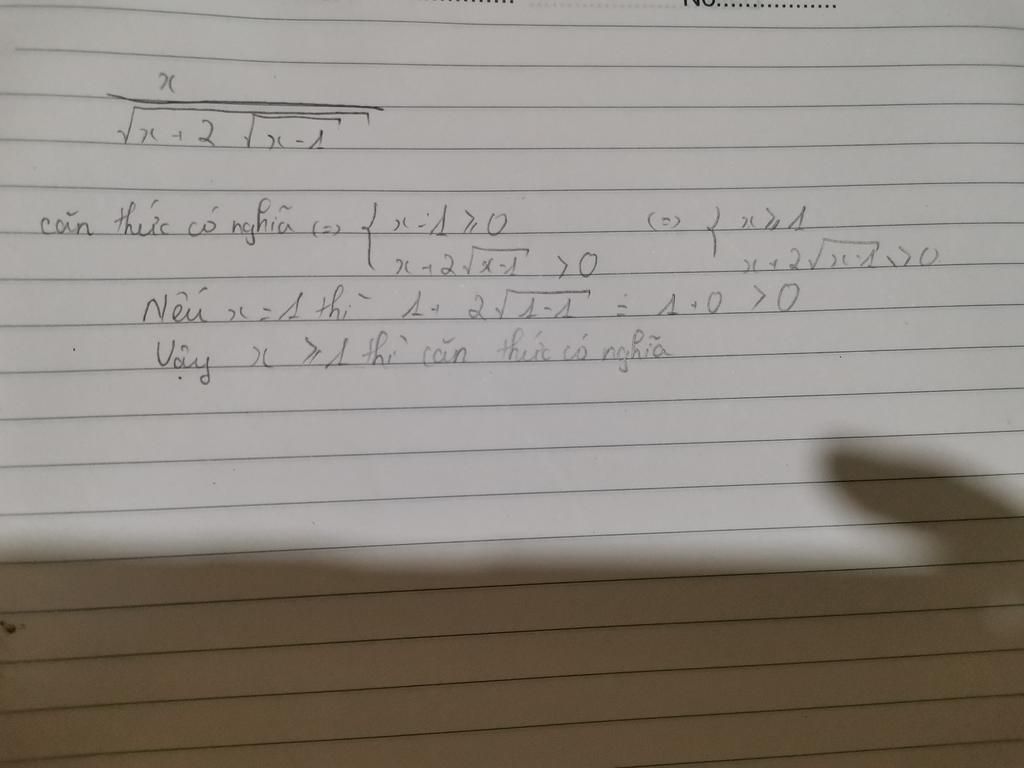 No.................
x
√x + 2 √x - 1
căn thức có nghĩa (=) { x - 1 ≥ 0 (=) { x ≥ 1
x + 2√x-1 > 0 x + 2√x-1 > 0
Nếu x = 1 thì 1 + 2√1-1 = 1 + 0 > 0
Vậy x ≥ 1 thì căn thức có nghĩa